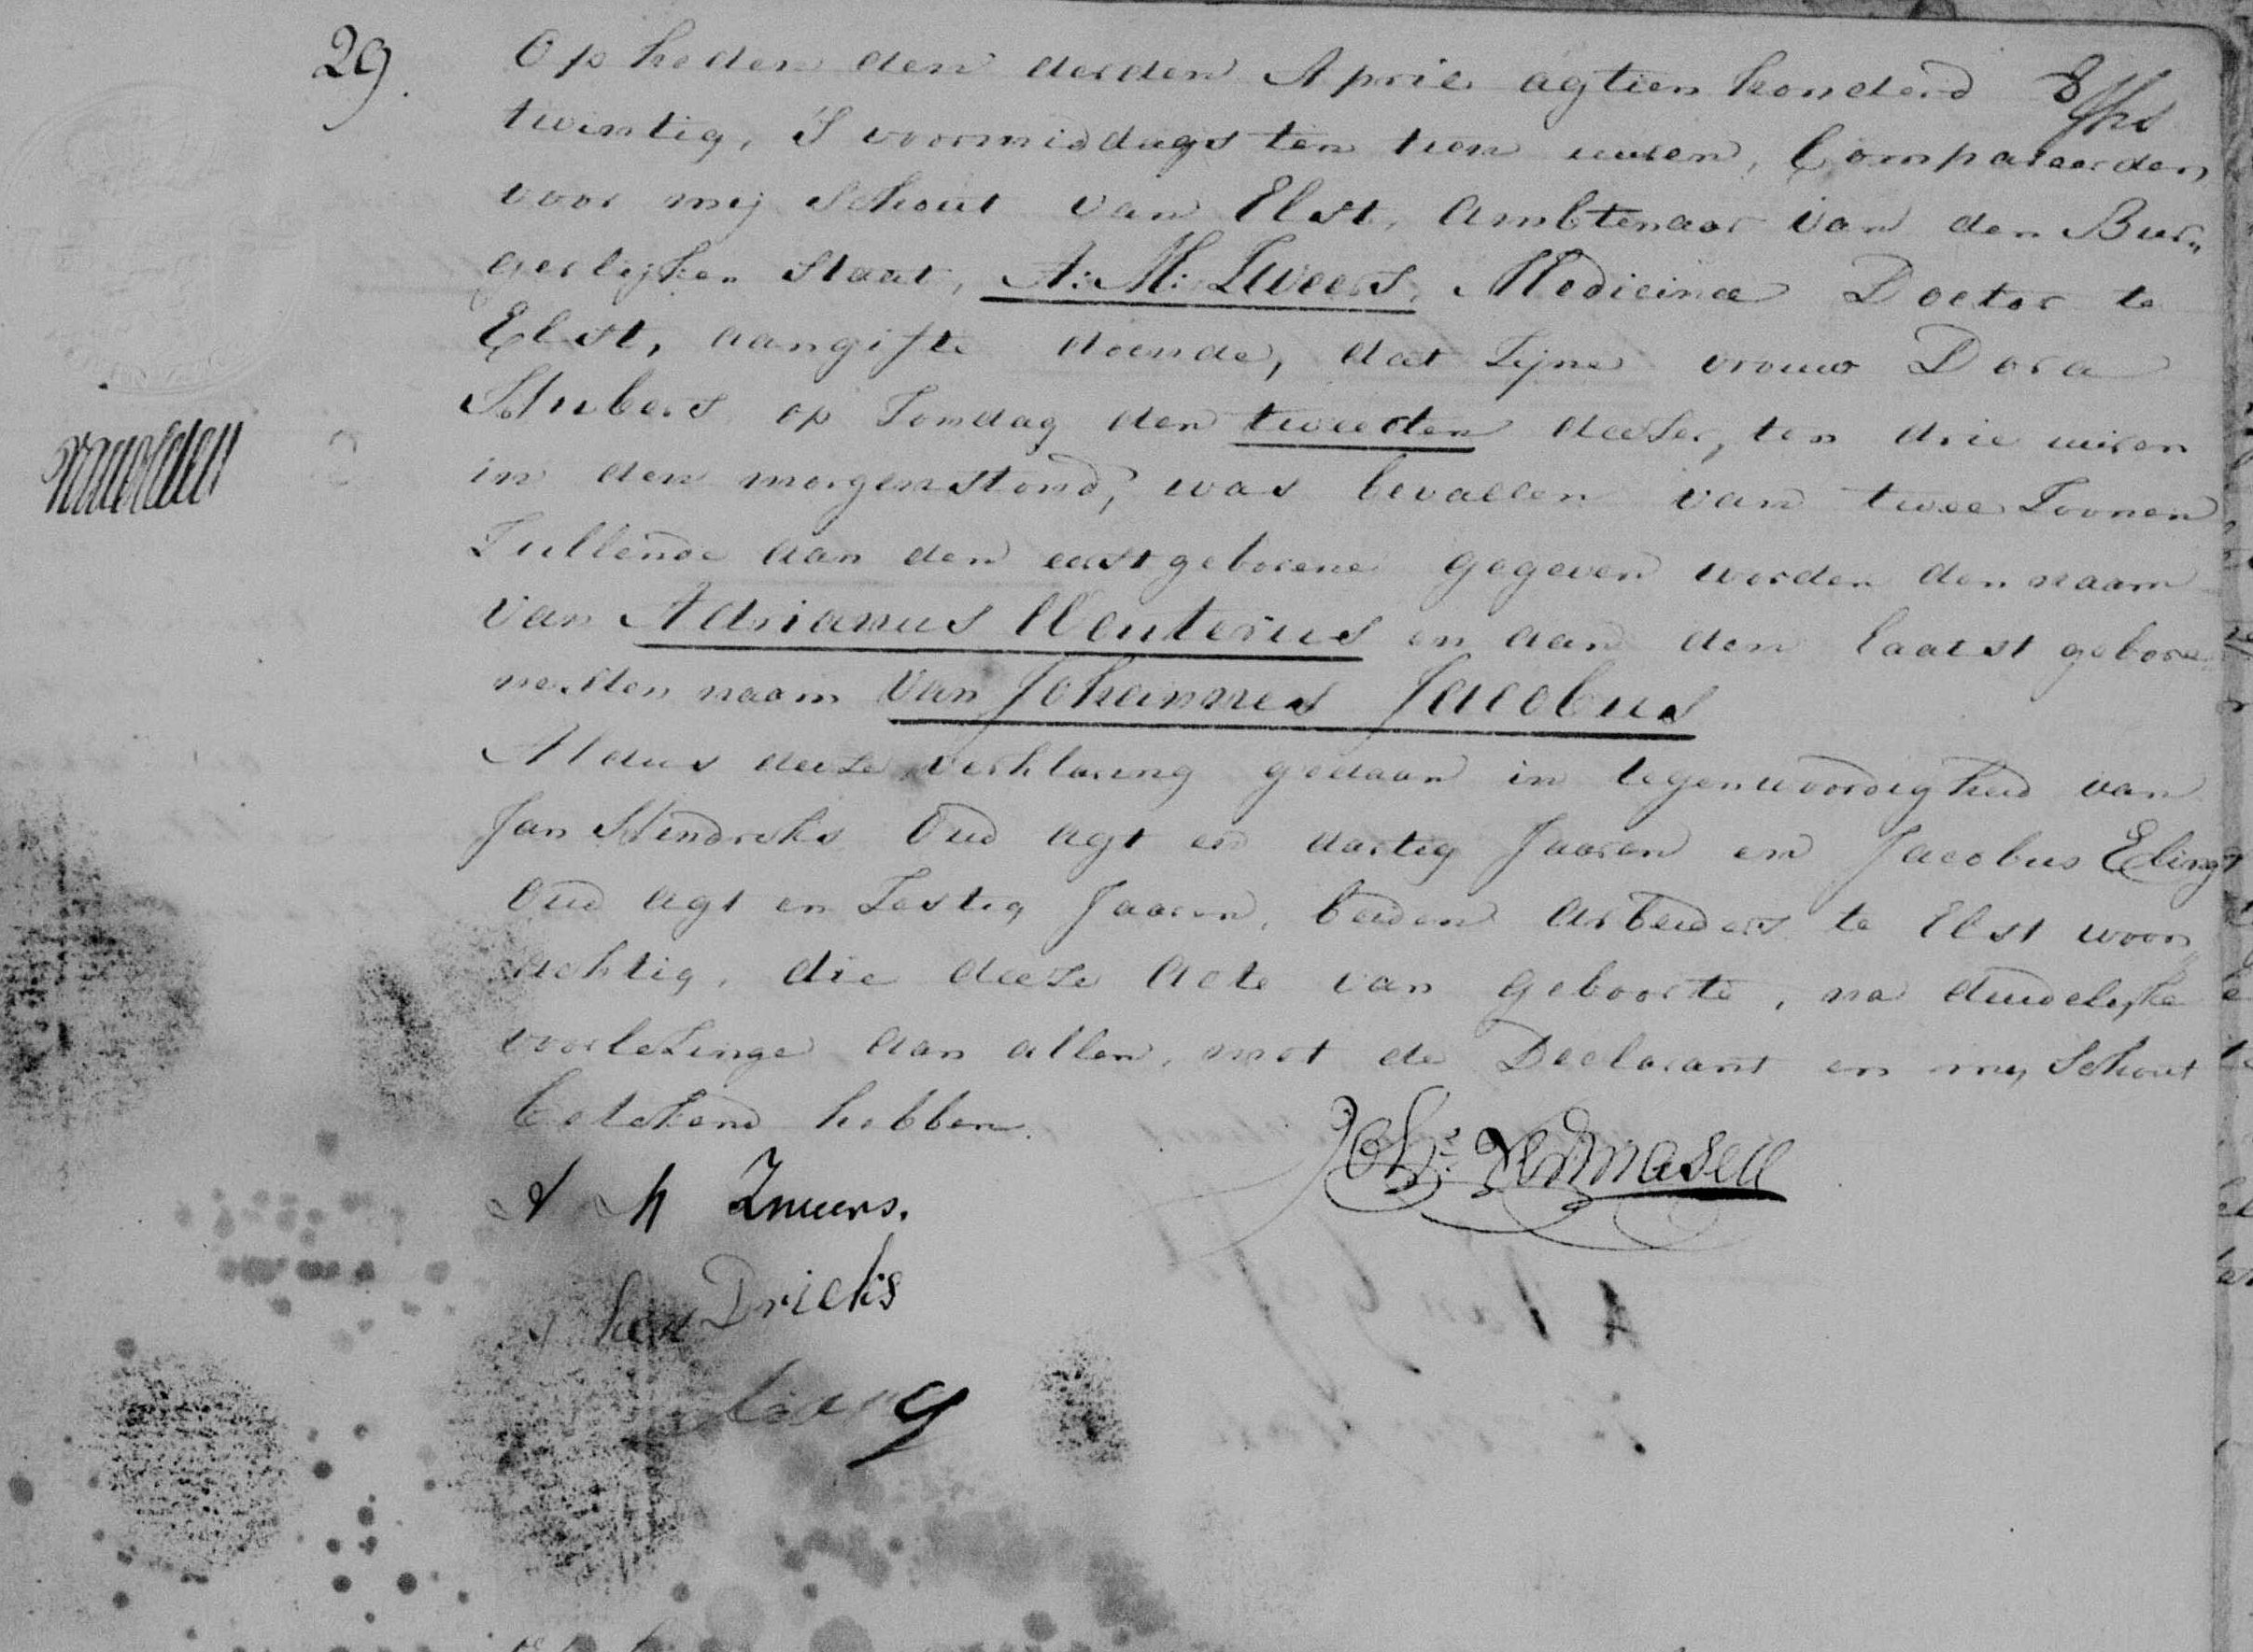 29. Op heden den derden April agtien honderd
twintig, 'S voormiddags ten tien uuren, Compareerden
voor mij Schout van Elst, Ambtenaar van den Bur„
gerlijken Staat, A: M: Zweers, Medicinae Doctor te
Elst, aangifte doende, dat Zijne vrouw Dora
Stubers op Zondag den tweeden deeser, ten drie uuren
in den morgenstond, was bevallen van twee Zoonen
Zullende aan den eerstgeborene gegeven worden den naam
van Adrianus Wouterus en aan den laatst gebore„
ne den naam van Johannes Jacobus
Aldus deeze verklaring gedaan in tegenwoordigheid van
Jan Hendriks Oud agt en dartig Jaaren en Jacobus Eling
Oud agt en Zestig Jaaren, beiden Arbeiders te Elst woon„
achtig, die deeze Acte van geboorte, na duidelijke
voorlezinge aan allen, met de Declarant en mij Schout
Getekend hebben.
A M Zweers.
hen Dricks